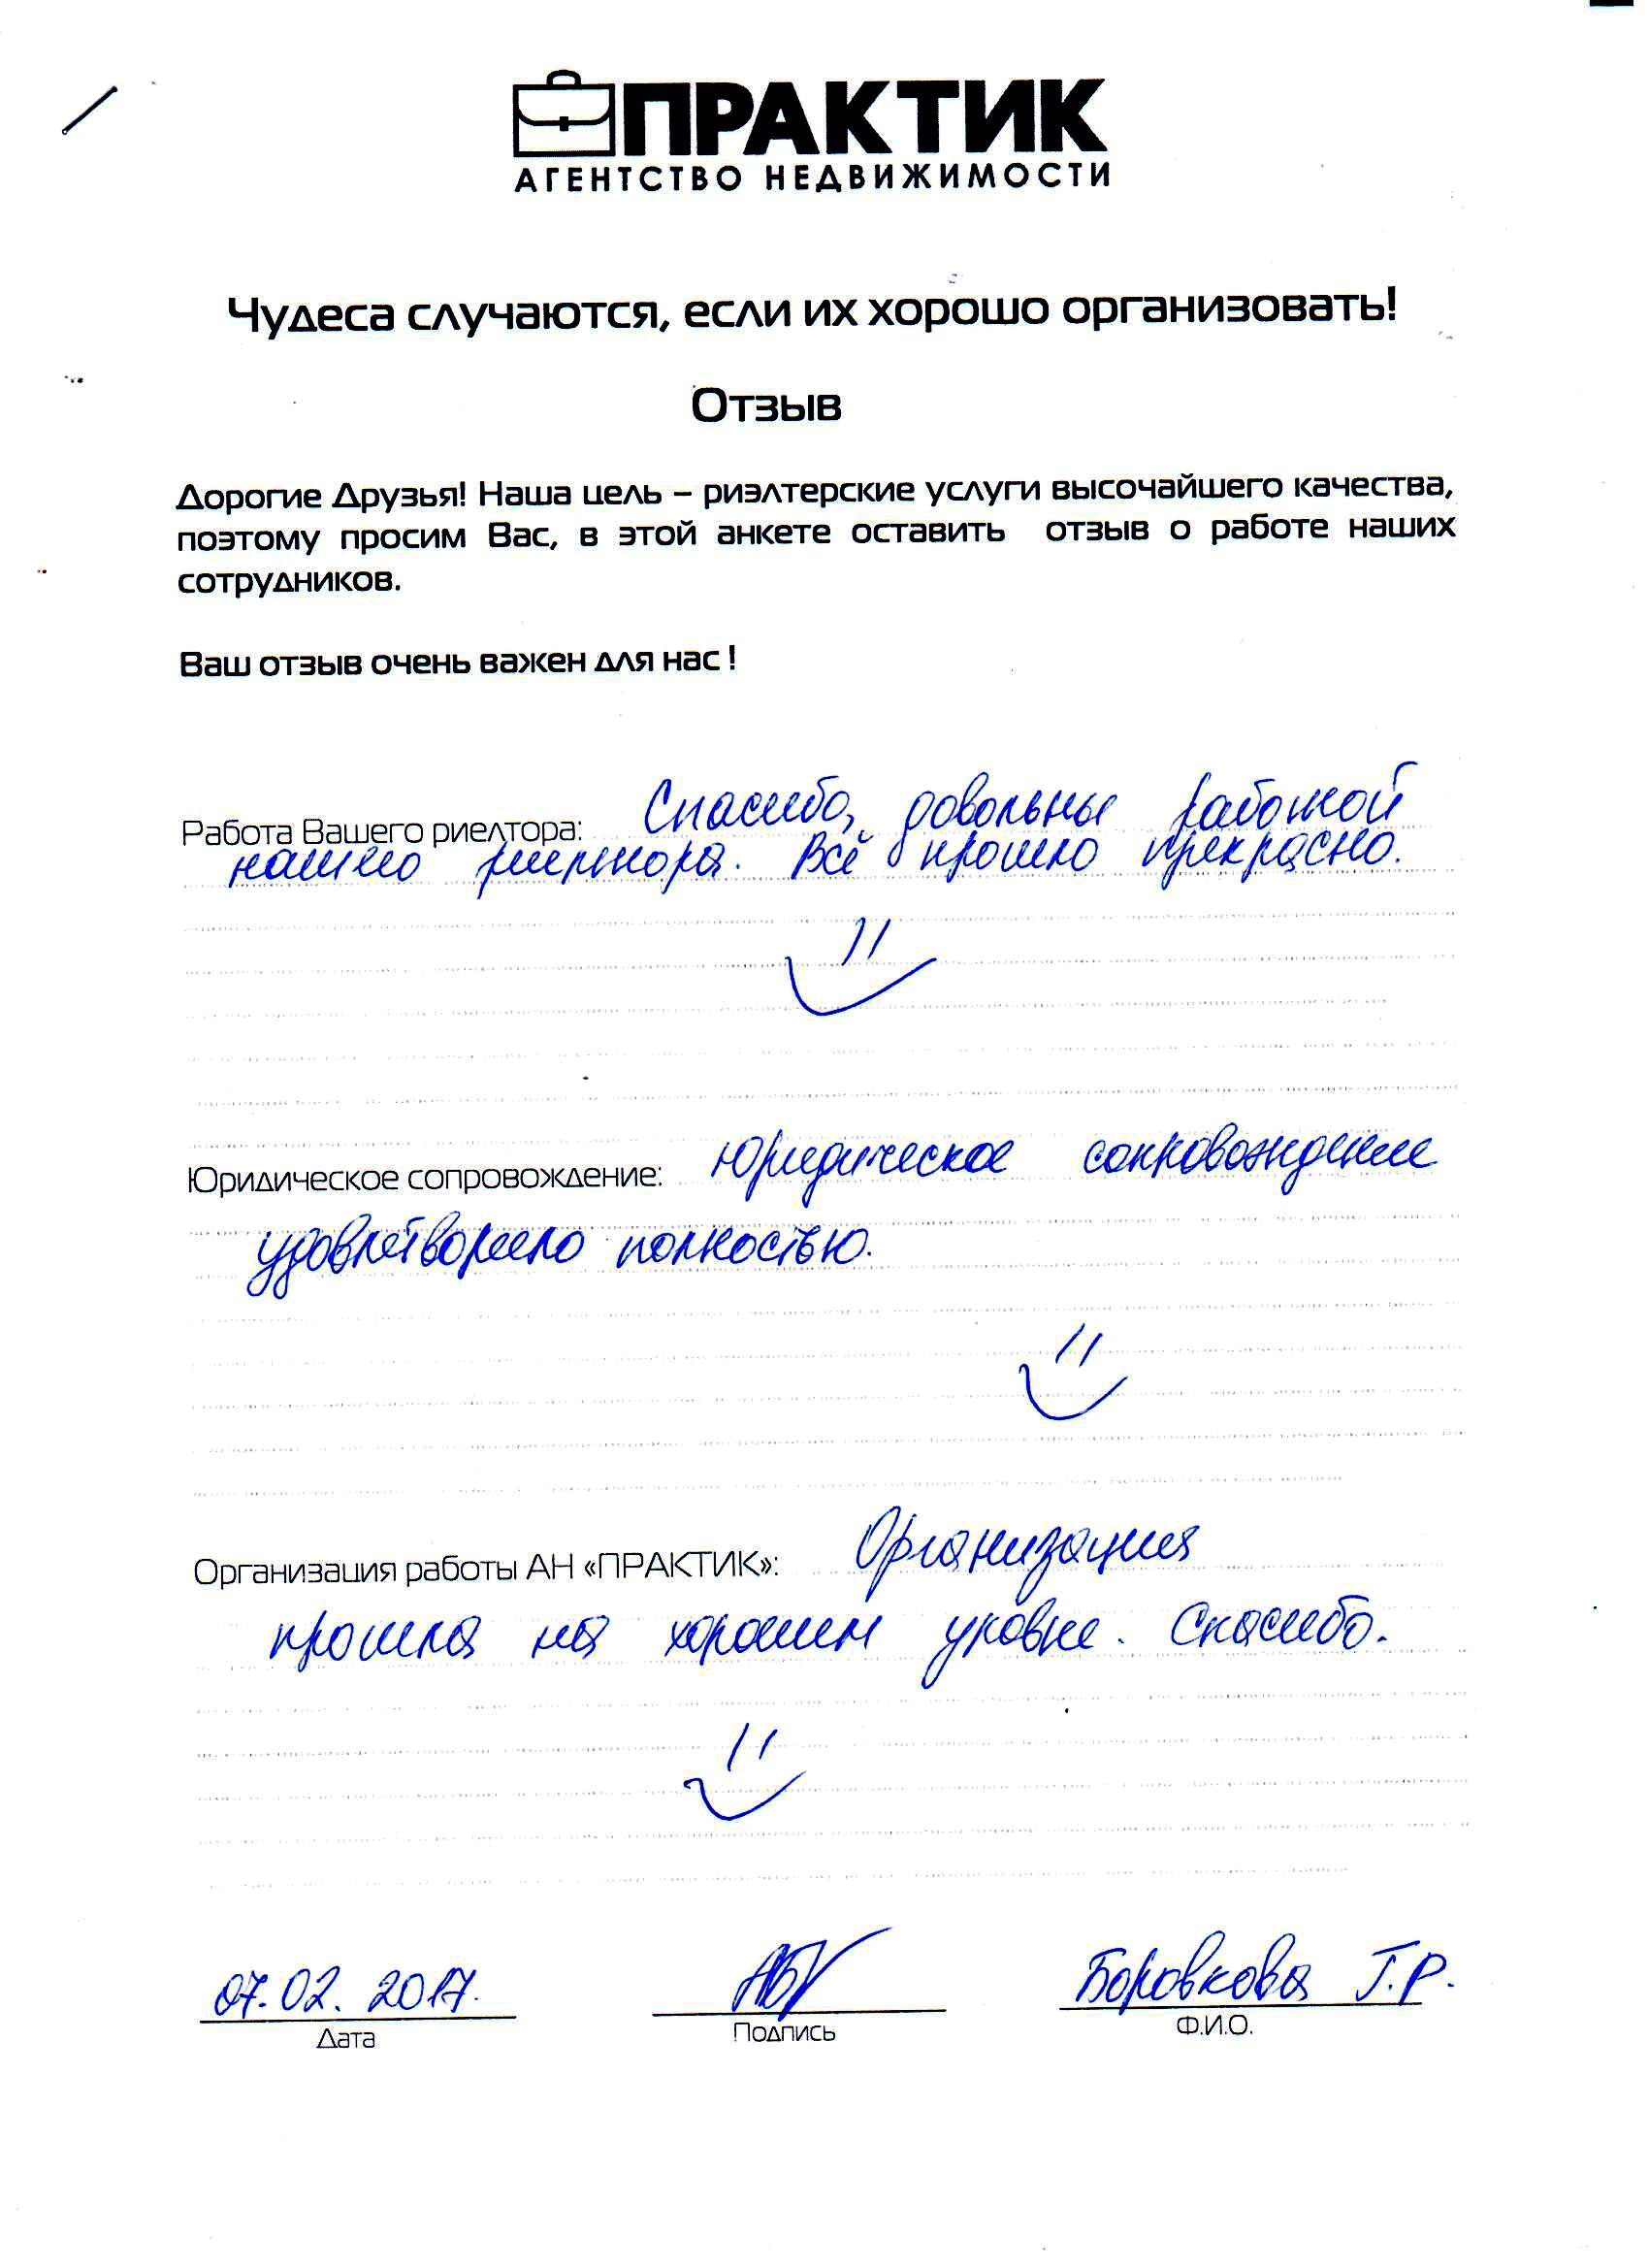 ПРАКТИК
АГЕНТСТВО НЕДВИЖИМОСТИ
Чудеса случаются, если их хорошо организовать!
Отзыв
Дорогие Друзья! Наша цель – риэлтерские услуги высочайшего качества,
поэтому просим Вас, в этой анкете оставить отзыв о работе наших
сотрудников.
Ваш отзыв очень важен для нас !
Работа Вашего риелтора: Спасибо, довольны работой
нашего риелтора. Всё прошло прекрасно.
Юридическое сопровождение: Юридическое сопровождение
удовлетворило полностью.
Организация работы АН «ПРАКТИК»: Организация
прошла на хорошем уровне. Спасибо.
07.02.2017. Боровкова Г.Р.
Дата Подпись Ф.И.О.